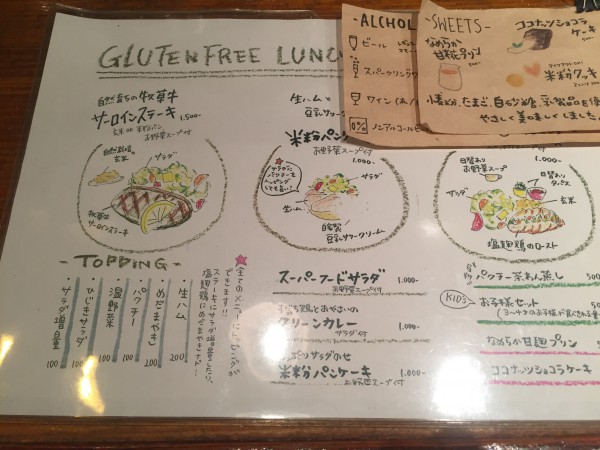 GLUTEN FREE LUNC
自然育ちの牧草牛
サーロインステーキ 1,500-
玄米 or 米粉パン
お野菜スープ付
自然栽培
玄米
サラダ
牧草牛
サーロインステーキ
生ハムと
豆乳サワークリーム
米粉パンケーキ
お野菜スープ付
1,000-
サラダ
生ハム
自家製
豆乳サワークリーム
日替わり
お野菜スープ
日替わり
タパス
サラダ
玄米
塩麹鶏のロースト
-ALCHOL
ビール
スパークリングワ
ワイン
0% ノンアルコールビ
-SWEETS-
なめらか
甘糀プリン
500-
ココナッツショコラ
ケーキ
米粉クッキ
小麦粉、たまご、白砂糖、乳製品を使
やさしく美味しくしました
-TOPPING-
・生ハム 200
・めだまやき 200
・パクチー 100
・温野菜 100
・ひじきサラダ 100
・サラダ増量 100
★全てのメニューにトッピングが
できます!!
ステーキにサラダ増量したり、
塩麹鶏にめだまやきなど!
スーパーフードサラダ 1,000-
お野菜スープ付
グリーンカレー 1,000-
サラダ付
米粉パンケーキ 1,000-
お野菜スープ付
パクチー茶わん蒸し 500
KID'S お子様セット 500
なめらか甘麹プリン
ココナッツショコラケーキ